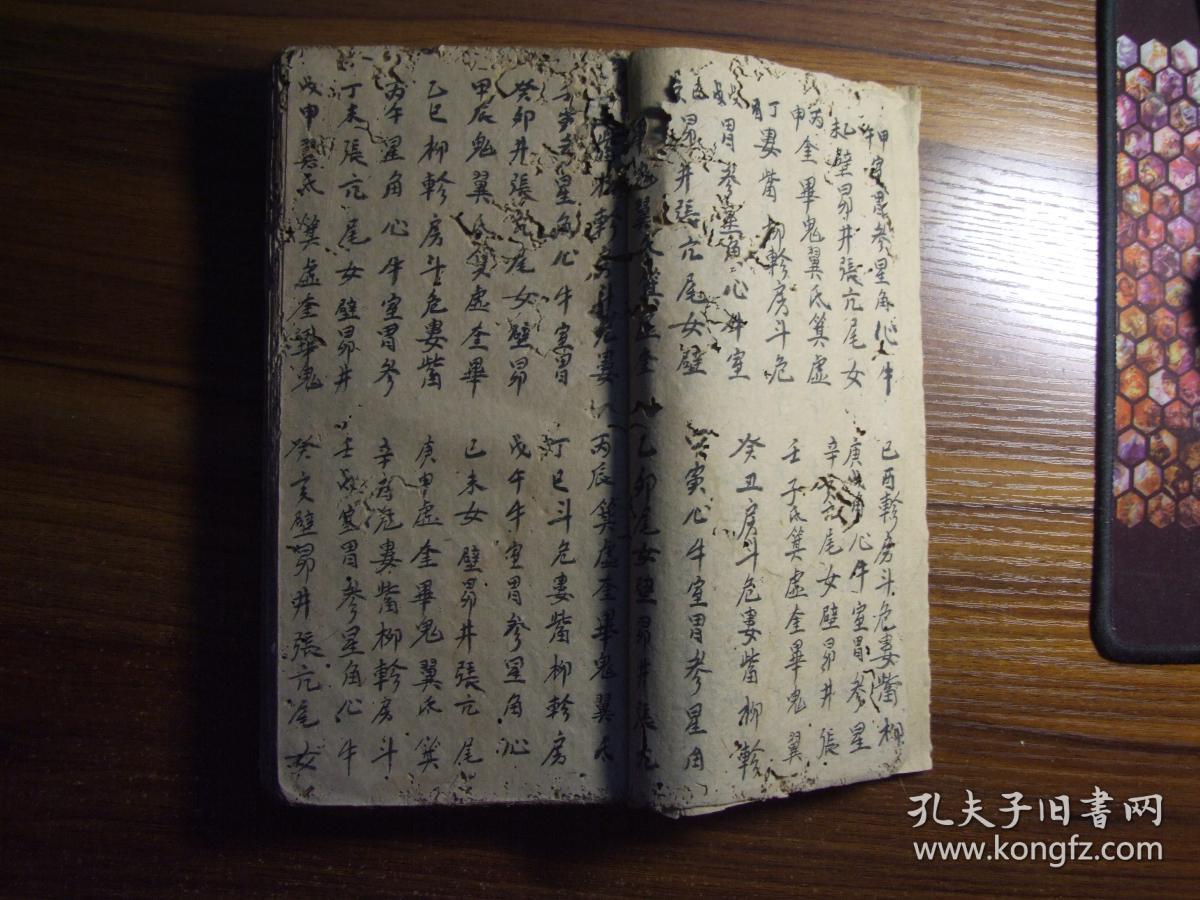 甲午室胃參星角心牛
未壁昴井張亢尾女
丙申奎畢鬼翼氐箕虛
丁酉婁觜柳軫房斗危
戊戌胃參星角心牛室
昴井張亢尾女壁
鬼翼氐箕虛奎
柳軫房斗危婁
壬寅參星角心牛室胃
癸卯井張亢尾女壁昴
甲辰鬼翼氐箕虛奎畢
乙巳柳軫房斗危婁觜
丙午星角心牛室胃參
丁未張亢尾女壁昴井
戊申翼氐箕虛奎畢鬼
己酉軫房斗危婁觜柳
庚戌角心牛室胃參星
辛亥亢尾女壁昴井張
壬子氐箕虛奎畢鬼翼
癸丑房斗危婁觜柳軫
甲寅心牛室胃參星角
乙卯尾女壁昴井張亢
丙辰箕虛奎畢鬼翼氐
丁巳斗危婁觜柳軫房
戊午牛室胃參星角心
己未女壁昴井張亢尾
庚申虛奎畢鬼翼氐箕
辛酉危婁觜柳軫房斗
壬戌室胃參星角心牛
癸亥壁昴井張亢尾女
孔夫子旧書网
www.kongfz.com